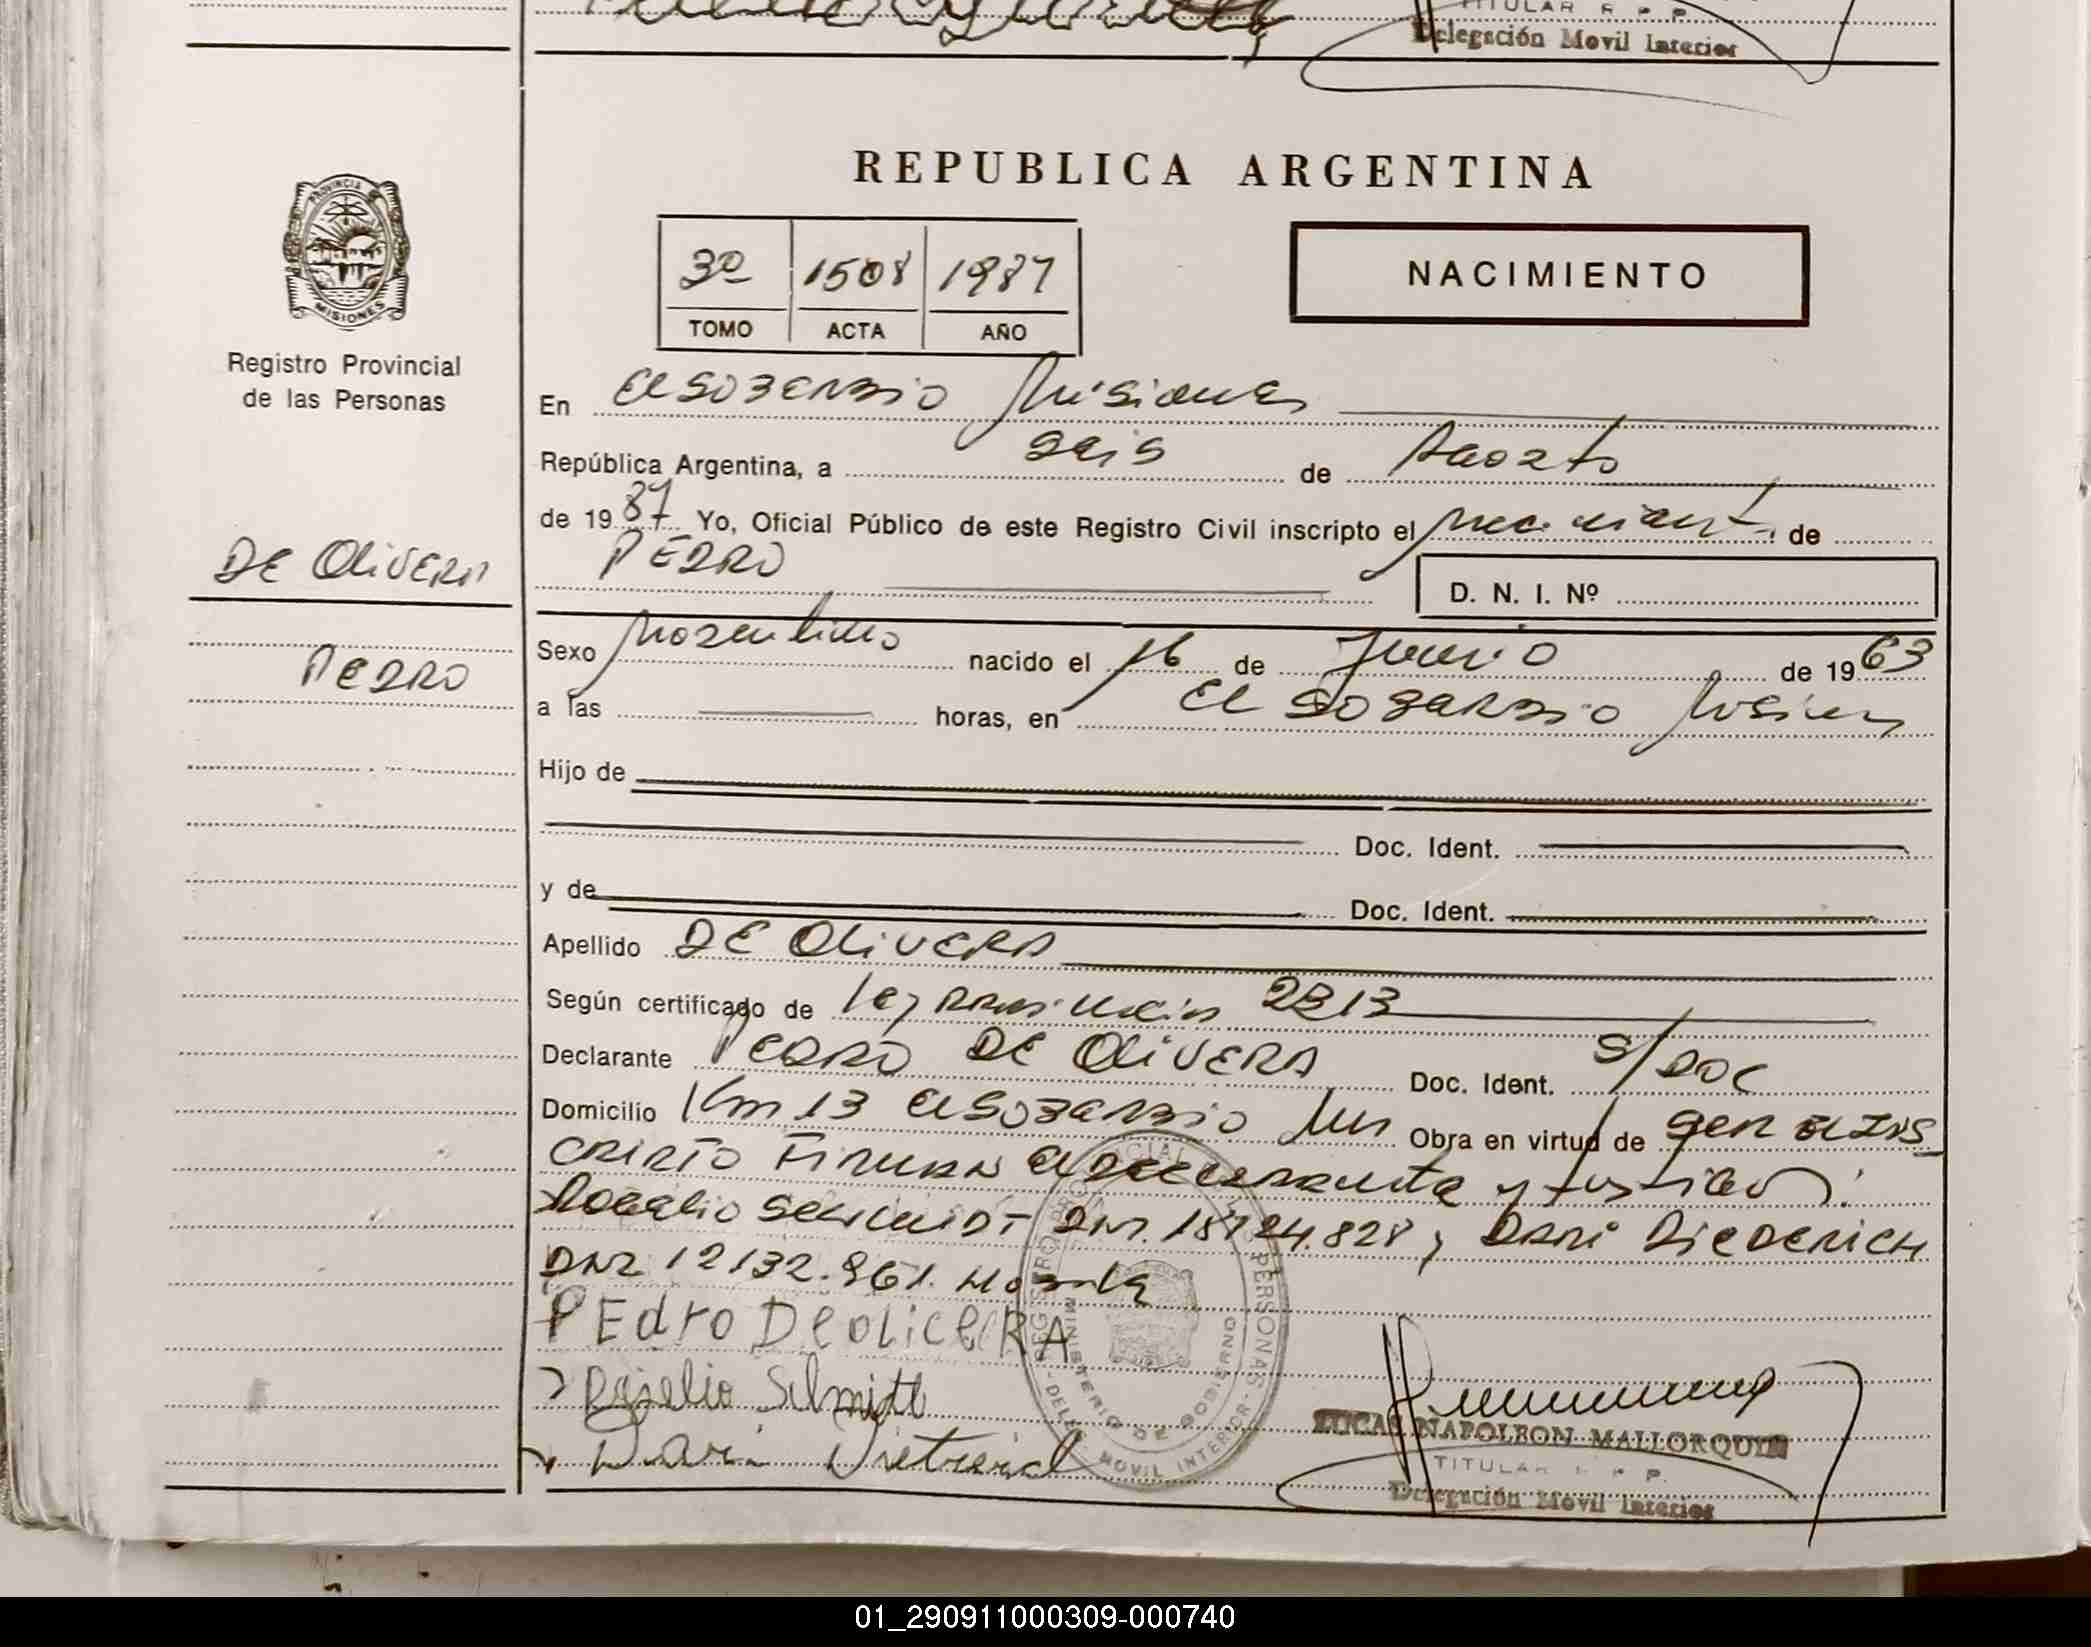 TITULAR R P P
Delegación Movil Interior
REPUBLICA ARGENTINA
PROVINCIA DE
MISIONES
Registro Provincial
de las Personas
3º 1508 1987
TOMO ACTA AÑO
NACIMIENTO
En El SOBERBIO Misiones
República Argentina, a seis de Agosto
de 1987 Yo, Oficial Público de este Registro Civil inscripto el nacimiento de
PEDRO
D. N. I. Nº
DE OliVERA
PEDRO
Sexo Masculino nacido el 16 de Junio de 1963
a las horas, en El SOBERBIO Misiones
Hijo de
Doc. Ident.
y de Doc. Ident.
Apellido DE OliVERA
Según certificado de Ley Provincial 2313
Declarante PEDRO DE OliVERA Doc. Ident. S/DOC
Domicilio Km 13 El SOBERBIO Mnes Obra en virtud de SER El INS
CRIPTO FIRMAN El Declarante y testigos:
Rogelio SCHMIDT DNI. 18124.828 y DARi DiEDERICH
DNI 12132.961.
PEdro DeoliceRA
Rogelio Schmidt
Dari Dietreich
REGISTRO PROVINCIAL PERSONAS
MINISTERIO DE GOBIERNO
-DELEG. MOVIL INTERIOR-
LUCAS NAPOLEON MALLORQUIN
TITULAR R P P.
Delegación Movil Interior
01_290911000309-000740